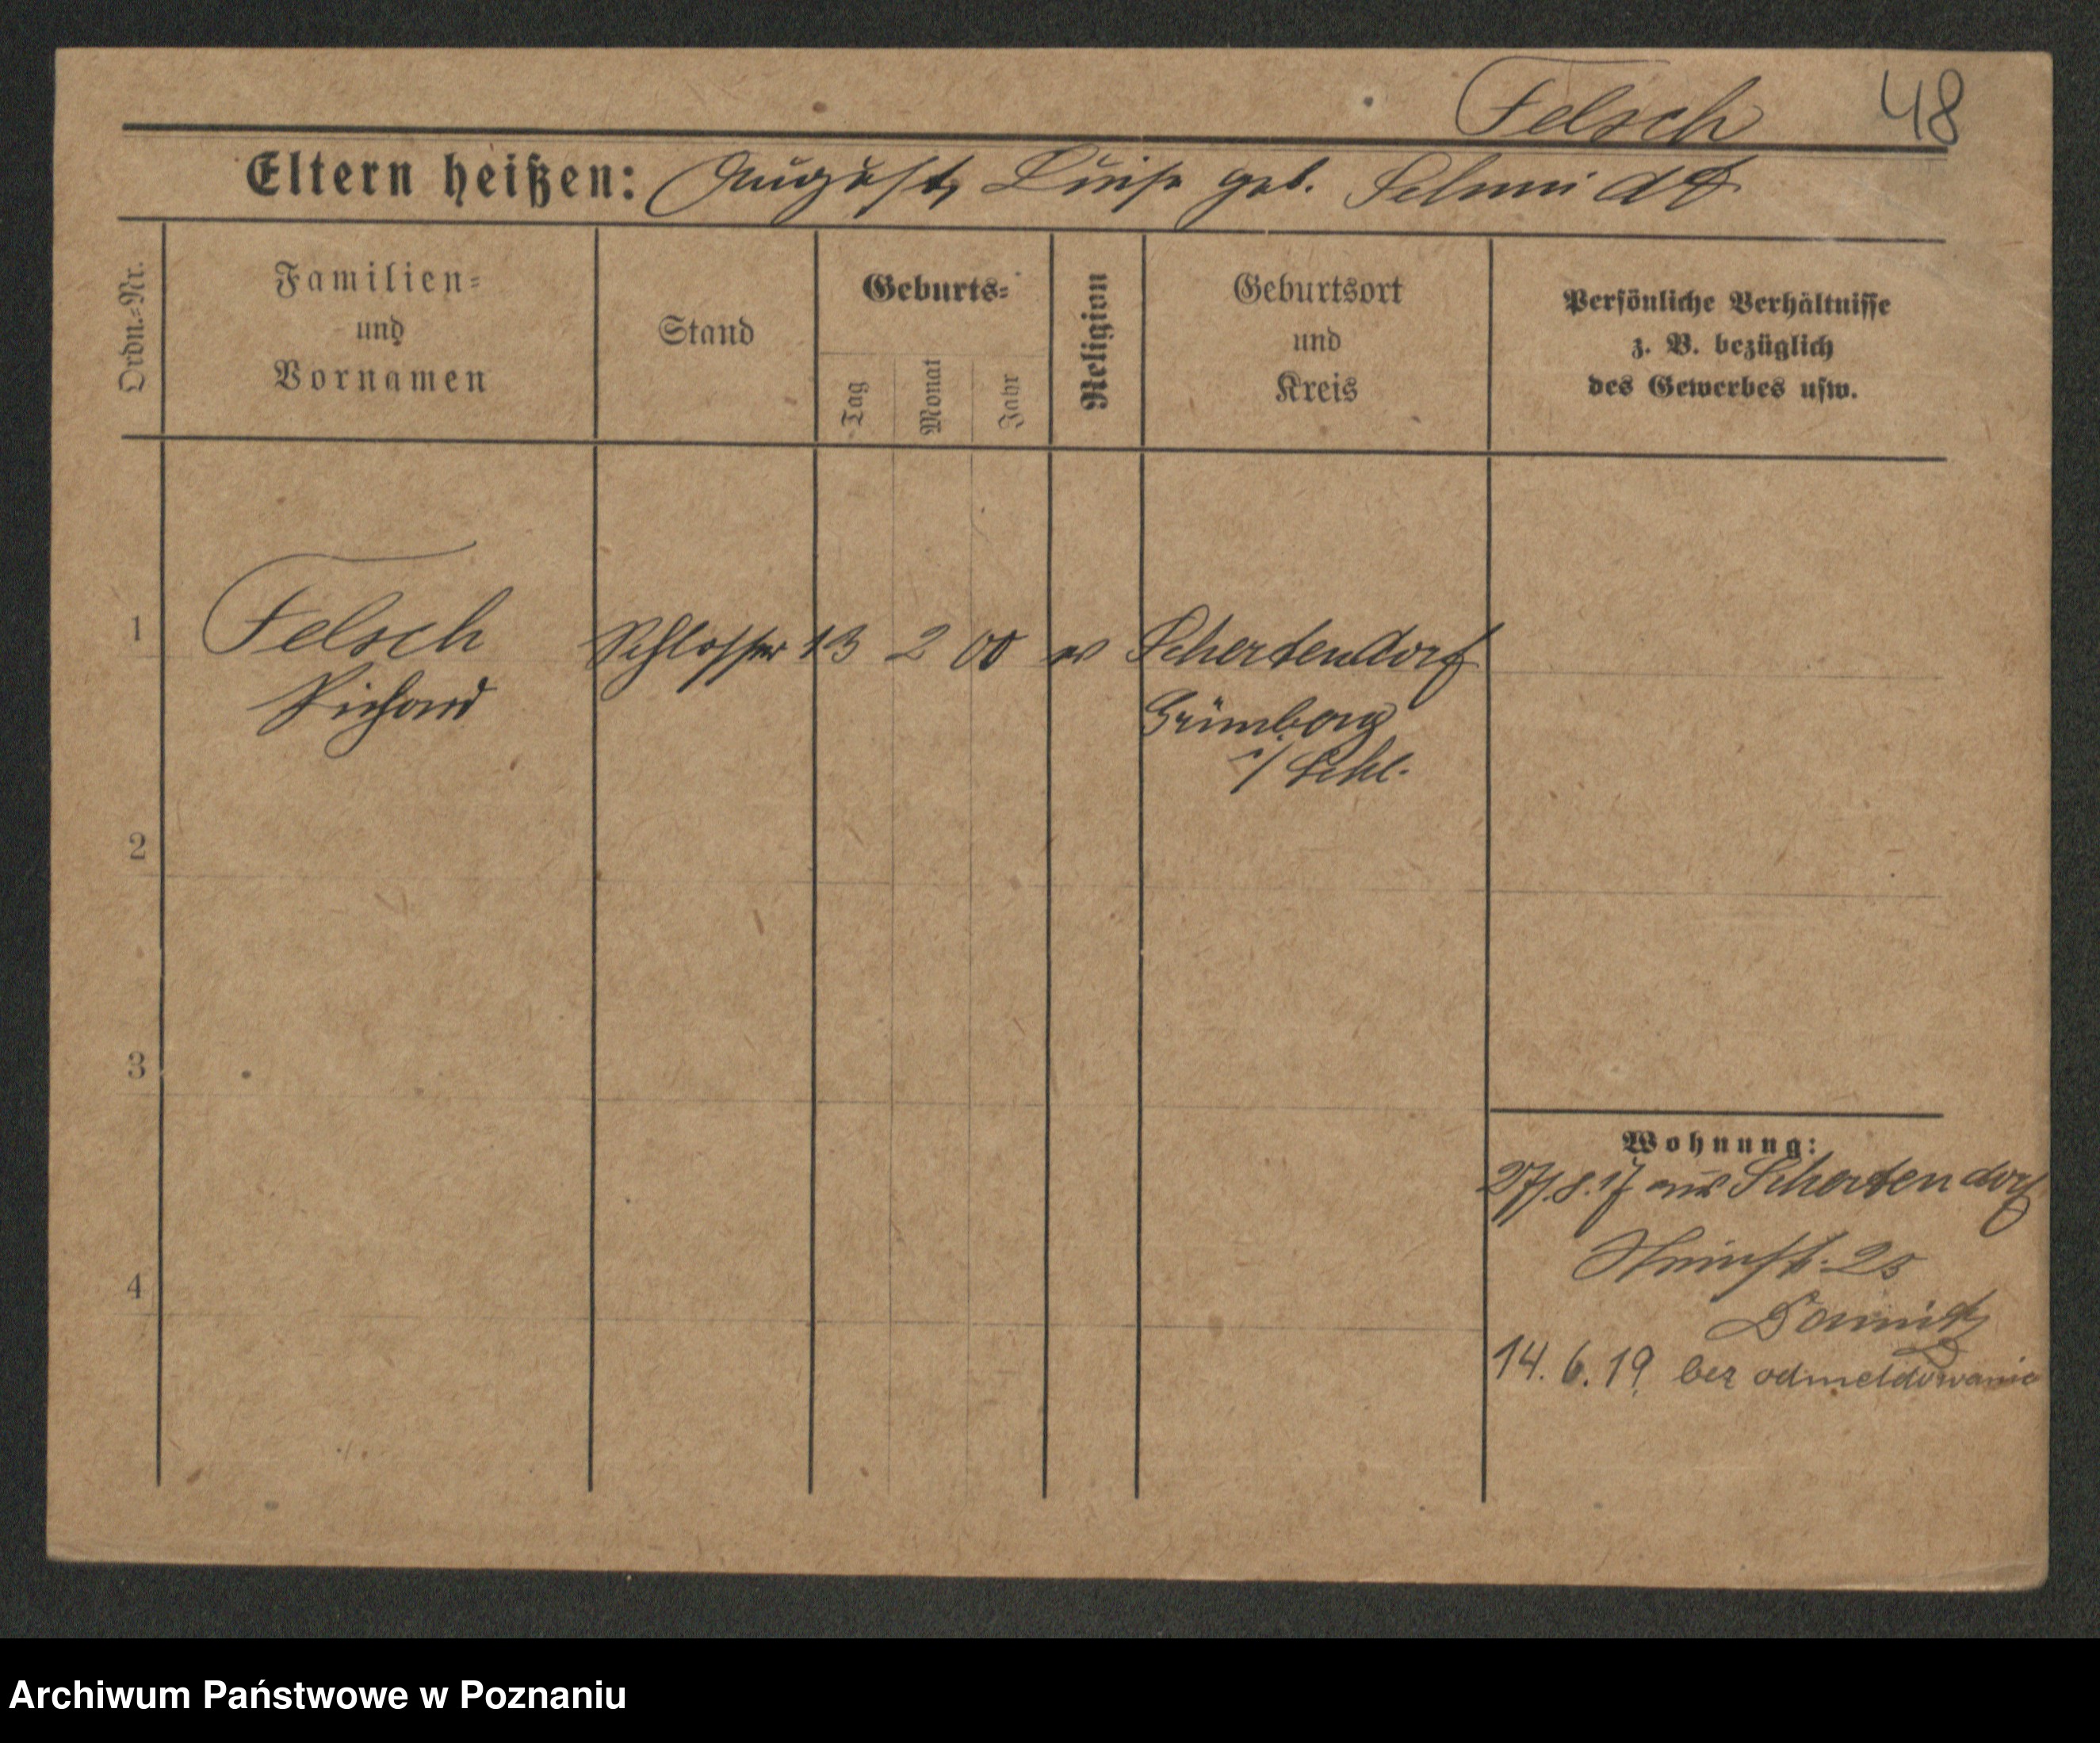 Felsch 48
Eltern heißen: August, Luise geb. Schmidt
Ordn.-Nr.
Familien-
und
Vornamen
Stand
Geburts-
Tag
Monat
Jahr
Religion
Geburtsort
und
Kreis
Persönliche Verhältnisse
z. B. bezüglich
des Gewerbes usw.
1 Felsch Schlosser 13 2 00 ev Schertendorf
Richard Grünberg
i/ Schl.
2
3
Wohnung:
27/8.17 aus Schertendorf
25
4
14. 6. 19. bez odmeldowania
Archiwum Państwowe w Poznaniu